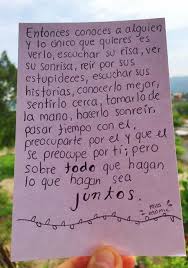 Entonces conoces a alguien
y lo único que quieres es
verlo, escuchar su risa, ver
su sonrisa, reir por sus
estupideces, escuchar sus
historias, conocerlo mejor,
sentirlo cerca, tomarlo de
la mano, hacerlo sonreir,
pasar tiempo con el,
preocuparte por el y que el
se preocupe por ti; pero
sobre todo que hagan
lo que hagan sea
juntos.